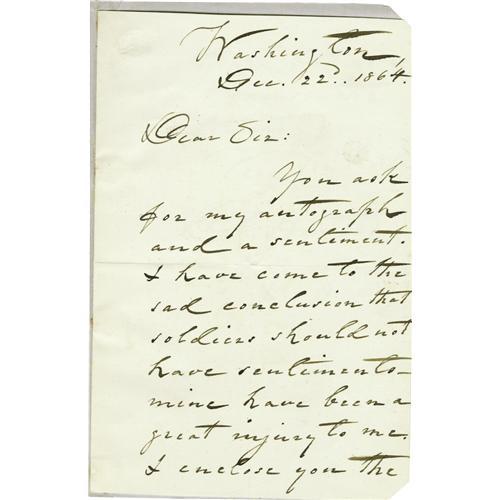 Washington,
Dec. 22d. 1864.
Dear Sir:
You ask
for my autograph
and a sentiment.
I have come to the
sad conclusion that
soldiers should not
have sentiments–
mine have been a
great injury to me.
I enclose you the